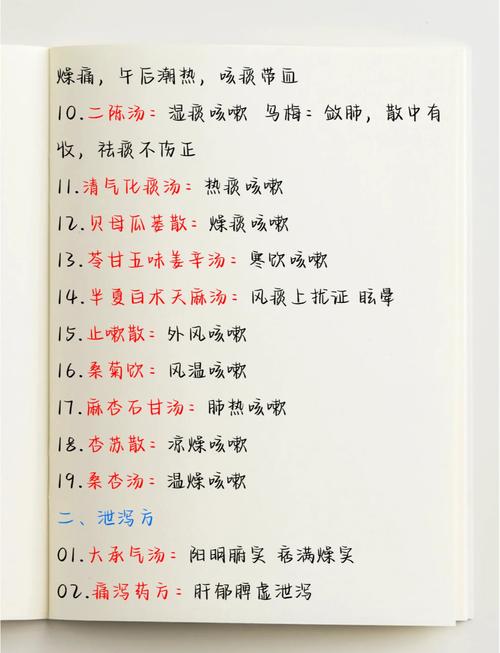 燥痛，午后潮热，咳痰带血
10.二陈汤：湿痰咳嗽 乌梅：敛肺，散中有
收，祛痰不伤正
11.清气化痰汤：热痰咳嗽
12.贝母瓜蒌散：燥痰咳嗽
13.苓甘五味姜辛汤：寒饮咳嗽
14.半夏白术天麻汤：风痰上扰证 眩晕
15.止嗽散：外风咳嗽
16.桑菊饮：风温咳嗽
17.麻杏石甘汤：肺热咳嗽
18.杏苏散：凉燥咳嗽
19.桑杏汤：温燥咳嗽
二、泄泻方
01.大承气汤：阳明腑实 痞满燥实
02.痛泻药方：肝郁脾虚泄泻